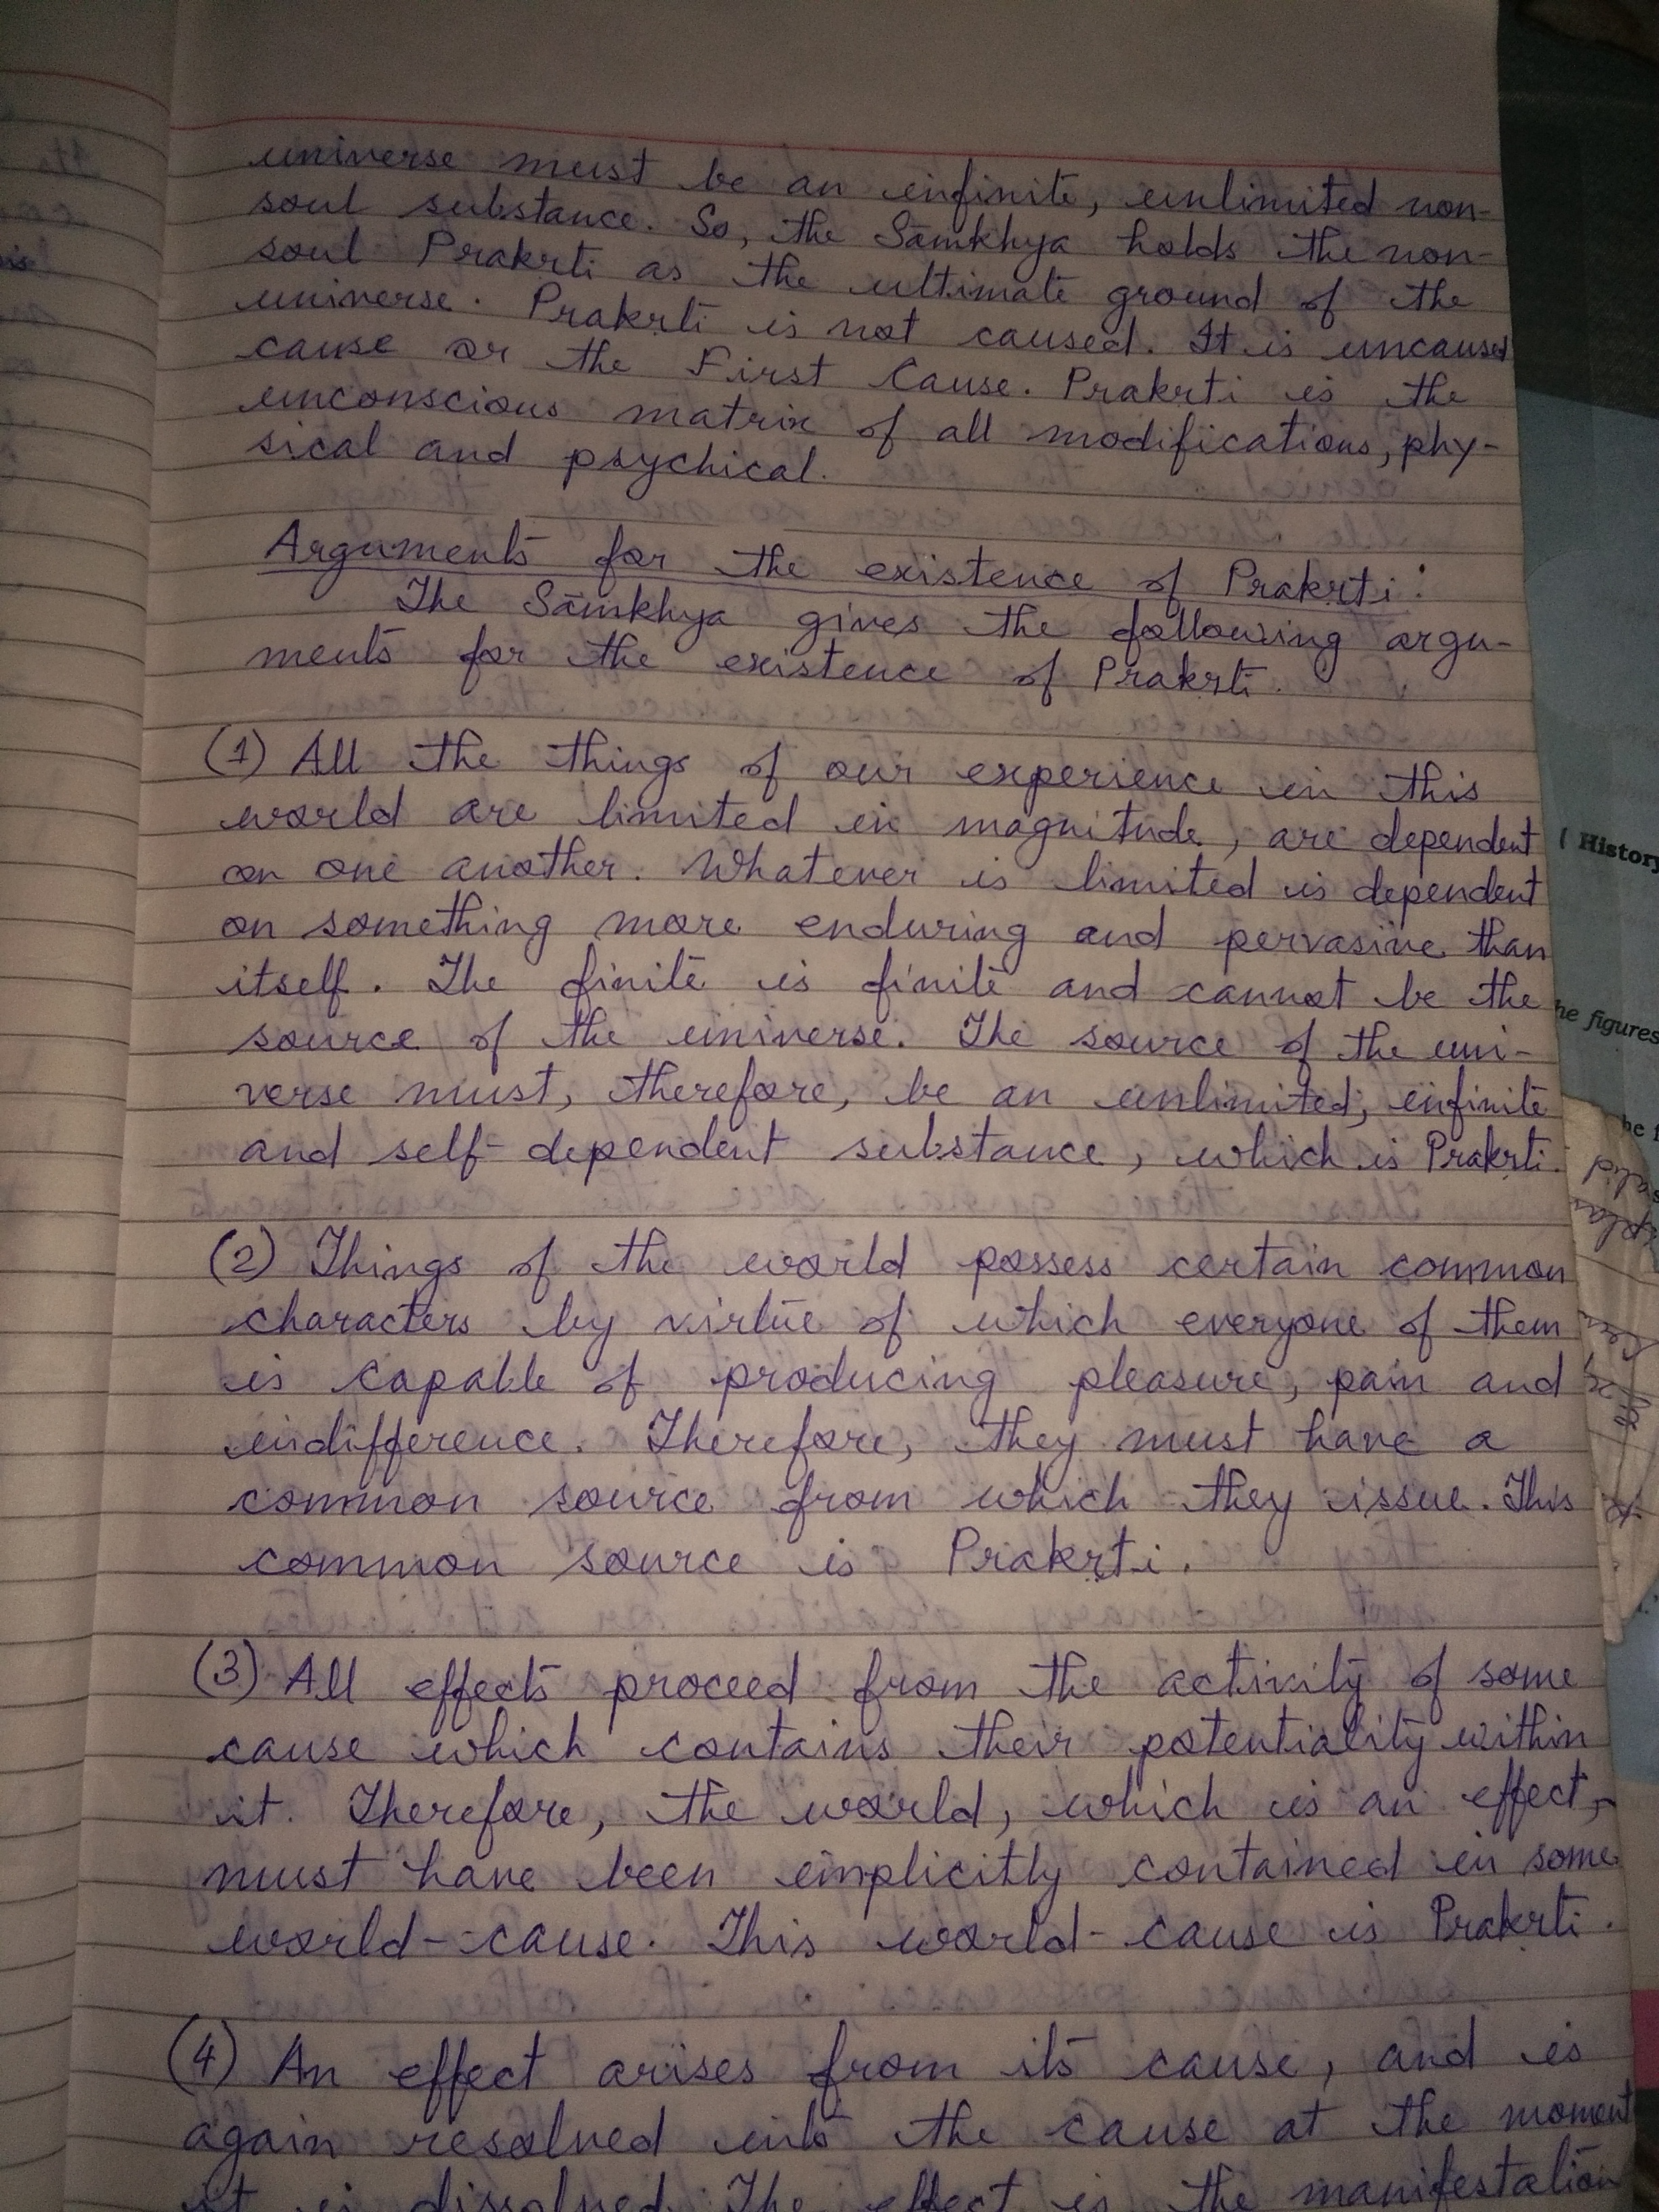 universe must be an infinite, unlimited non-
soul substance. So, the Sāmkhya holds the non-
soul Prakṛti as the ultimate ground of the
universe. Prakṛti is not caused. It is uncaused
cause or the First Cause. Prakṛti is the
unconscious matrix of all modifications, phy-
sical and psychical.
Arguments for the existence of Prakṛti:
The Sāmkhya gives the following argu-
ments for the existence of Prakṛti.
(1) All the things of our experience in this
world are limited in magnitude, are dependent
on one another. Whatever is limited is dependent
on something more enduring and pervasive than
itself. The finite is finite and cannot be the
source of the universe. The source of the uni-
verse must, therefore, be an unlimited, infinite
and self-dependent substance, which is Prakṛti.
(2) Things of the world possess certain common
characters by virtue of which everyone of them
is capable of producing pleasure, pain and
indifference. Therefore, they must have a
common source from which they issue. This
common source is Prakṛti.
(3) All effects proceed from the activity of some
cause which contains their potentiality within
it. Therefore, the world, which is an effect,
must have been implicitly contained in some
world-cause. This world-cause is Prakṛti.
(4) An effect arises from its cause, and is
again resolved into the cause at the moment
it is dissolved. The effect is the manifestation
( History
he figures